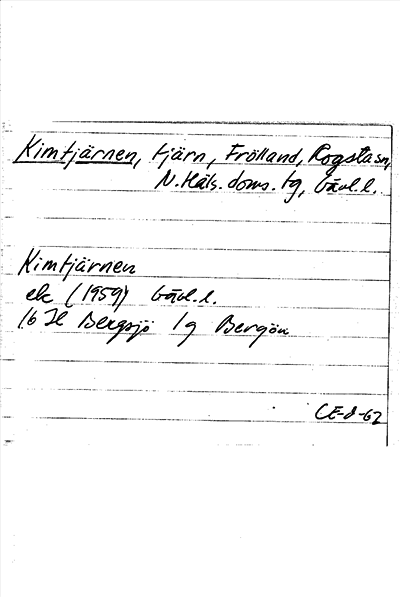 Kimtjärnen, tjärn, Frölland, Rogsta sn,
N. Häls. doms. tg, Gävl. l.
Kimtjärnen
ek (1959) Gävl. l.
16 H Bergsjö 1g Bergön
CE-8-62